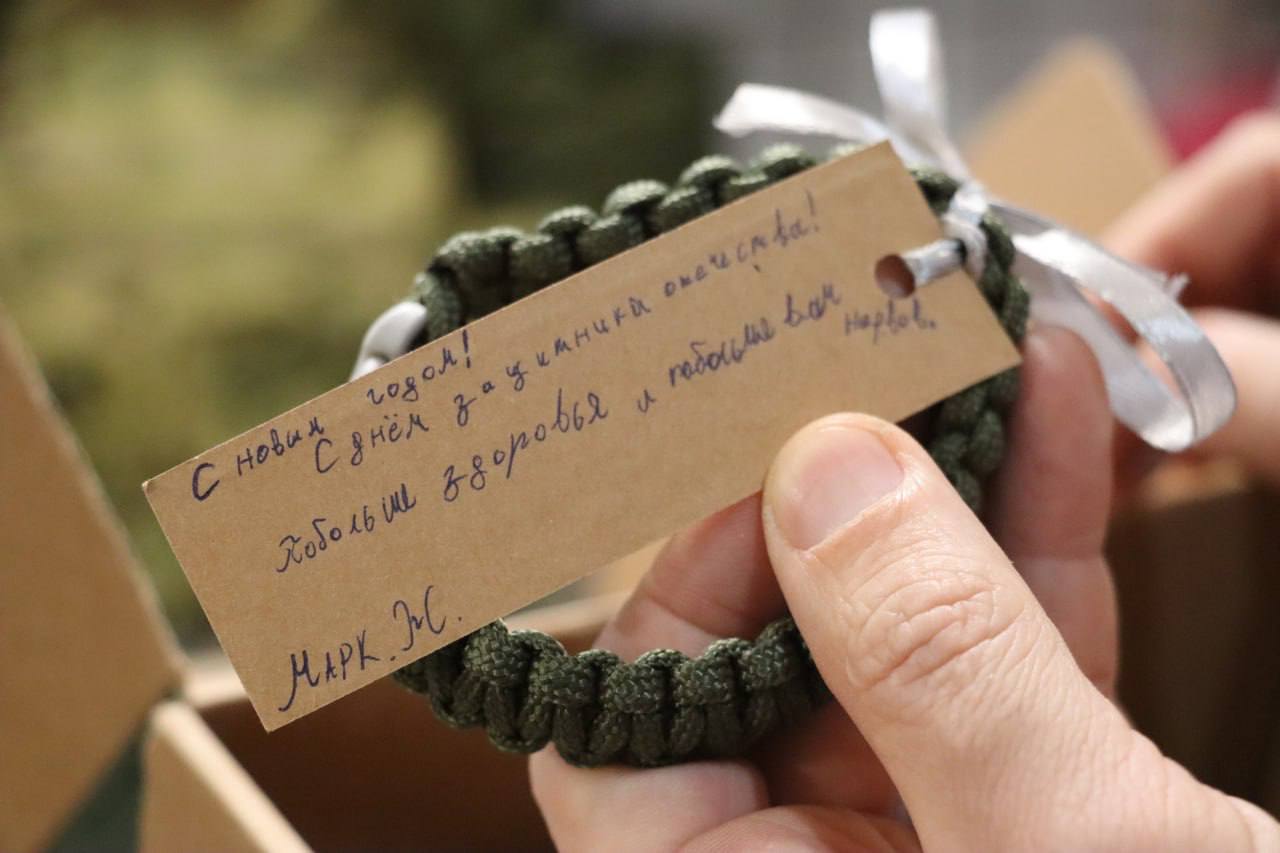 С новым годом!
С днём защитника отечества!
Побольше здоровья и побольше вам
нервов.
Марк. Ж.